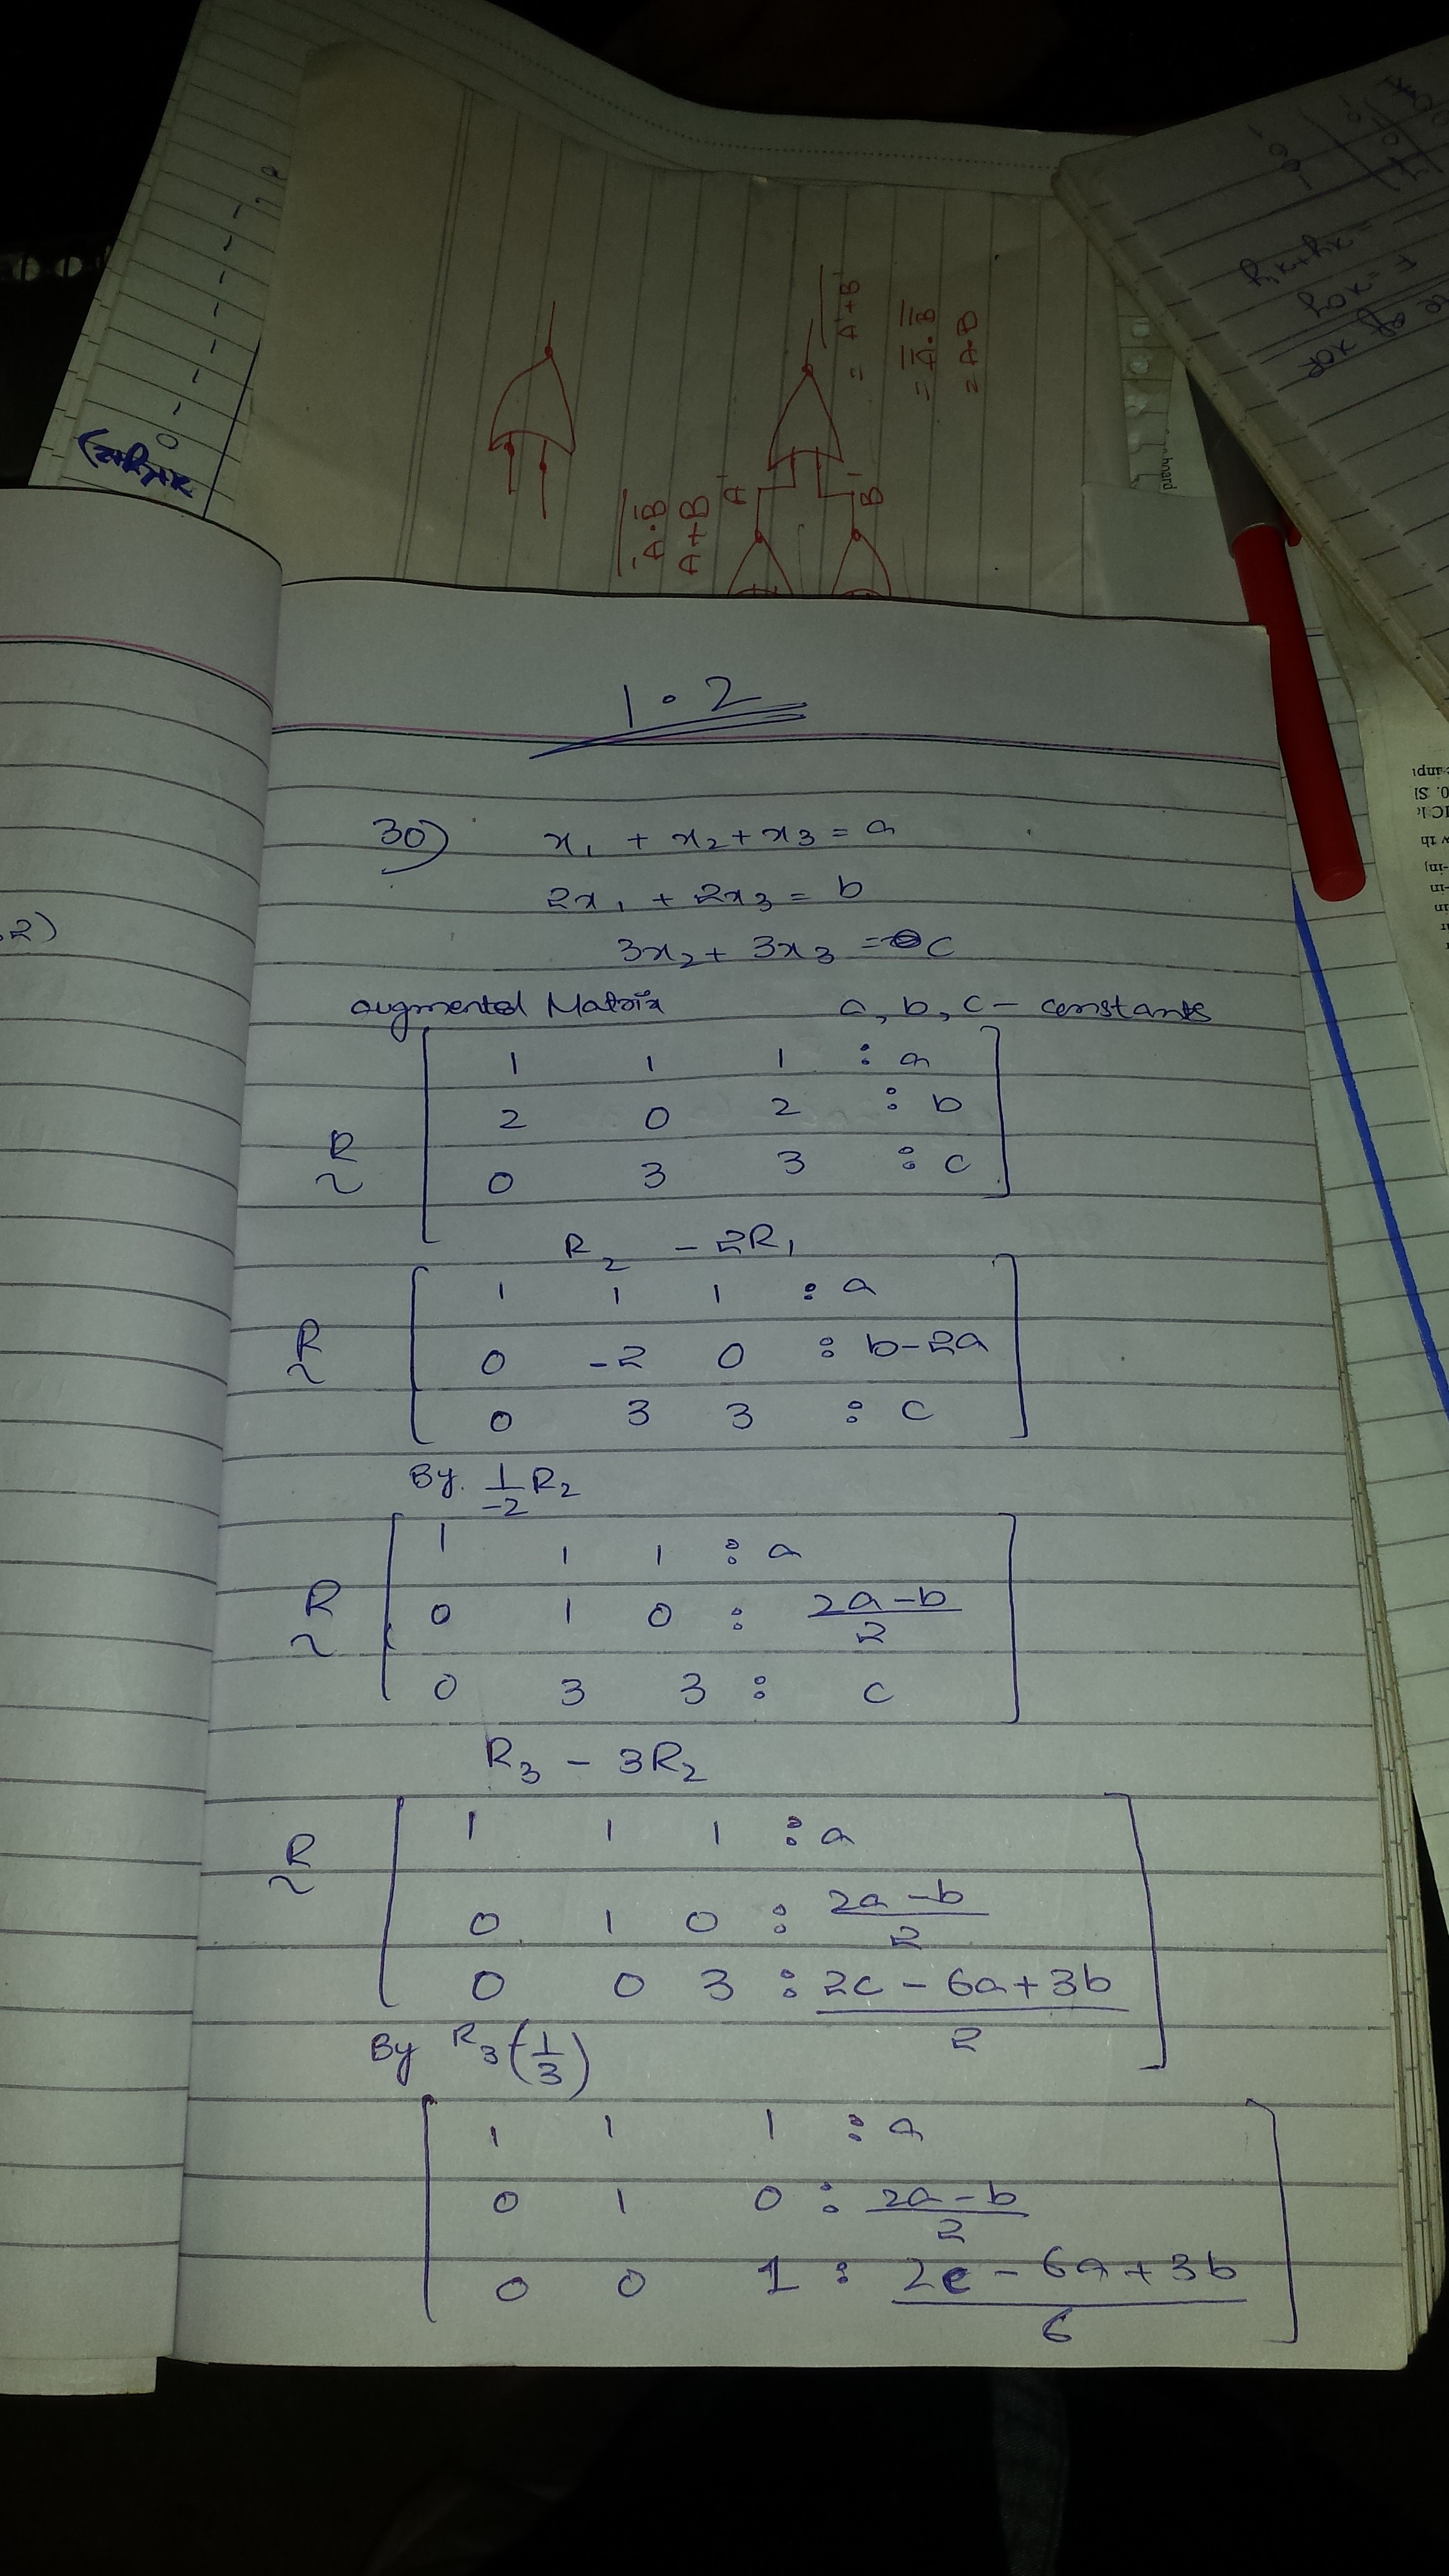 A'+B'
= A̅·B̅
= A·B
A̅·B̅
A+B
A'
B'
board
2)
1.2
30) x₁ + x₂ + x₃ = a
2x₁ + 2x₃ = b
3x₂ + 3x₃ = c
augmented Matrix a, b, c - constants
1 1 1 : a
2 0 2 : b
R ~ 0 3 3 : c
R₂ - 2R₁
1 1 1 : a
R ~ 0 -2 0 : b-2a
0 3 3 : c
By. 1/-2 R₂
1 1 1 : a
R ~ 0 1 0 : 2a-b/2
0 3 3 : c
R₃ - 3R₂
R ~ 1 1 1 : a
0 1 0 : 2a-b/2
0 0 3 : 2c-6a+3b/2
By R₃(1/3)
1 1 1 : a
0 1 0 : 2a-b/2
0 0 1 : 2c-6a+3b/6